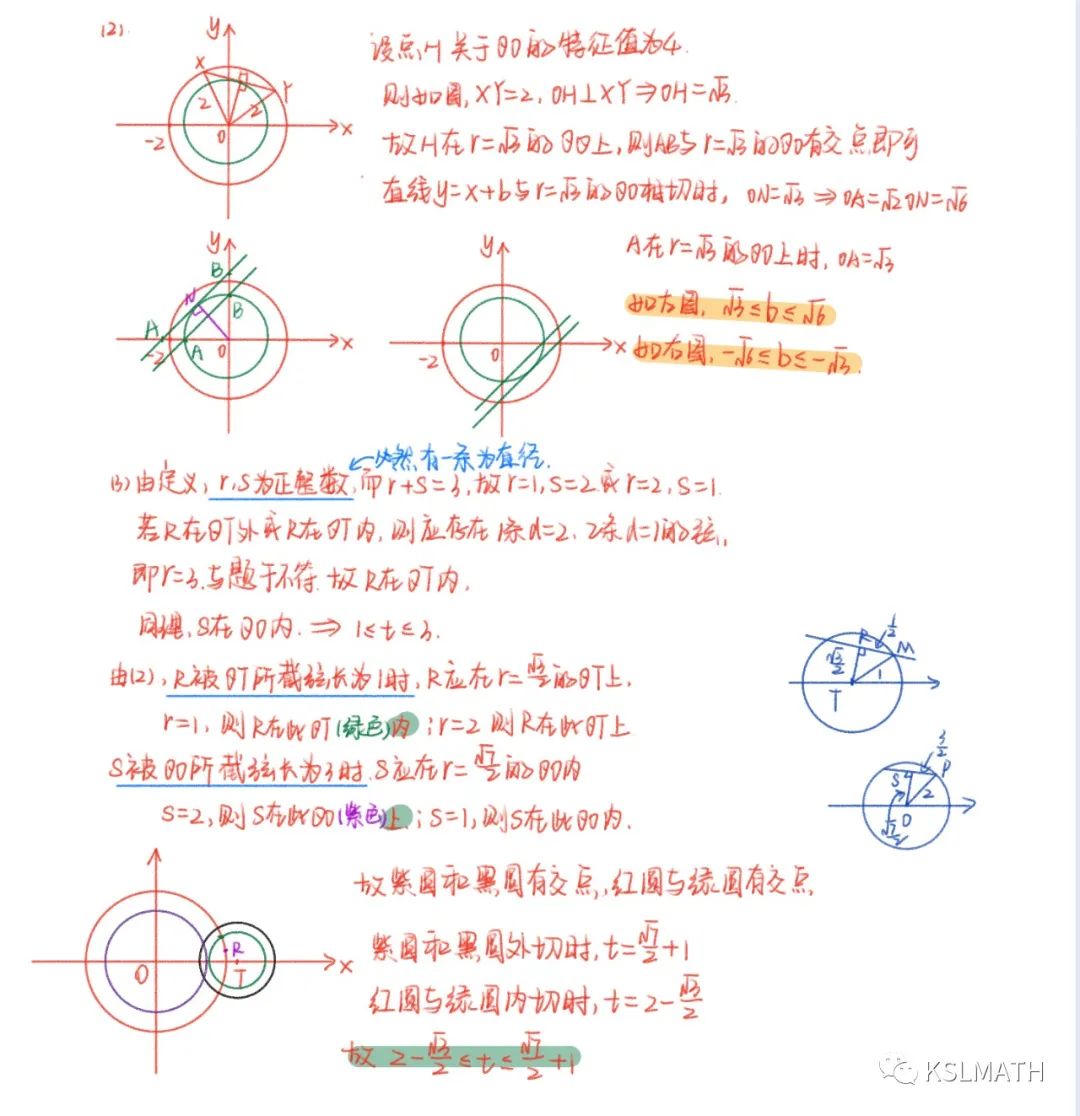 (2).
y
X
Y
2
2
-2
O
x
设点H关于⊙O的特征值为4.
则如图, XY=2, OH⊥XY⇒OH=√3.
故H在r=√3的⊙O上, 则AB与r=√3的⊙O有交点即可
直线y=x+b与r=√3的⊙O相切时, ON=√3 ⇒OA=√2ON=√6
A在r=√3的⊙O上时, OA=√3
如右图, -√6≤b≤-√3.
y
B
N
B
A
A
-2
O
x
y
-2
O
x
←必然有一条为直径.
(3)由定义, r,s为正整数,而r+s=3,故r=1,s=2或r=2,s=1.
即r=3.与题干不符.故R在⊙T内.
同理,S在⊙O内.⇒1≤t≤3.
由(2), R被⊙T所截弦长为1时, R应在r=√3/2的⊙T上.
r=1, 则R在此⊙T(绿色)内; r=2则R在此⊙T上
S被⊙O所截弦长为3时. S应在r=√7/2的⊙O内
S=2,则S在此⊙O(紫色)上; S=1,则S在此⊙O内.
R
1/2
M
√3/2
1
T
3/2
S
P
2
O
√7/2
O
R
T
x
故紫圆和黑圆有交点,红圆与绿圆有交点.
紫圆和黑圆外切时, t=√7/2+1
红圆与绿圆内切时, t=2-√3/2
故 2-√3/2≤t≤√7/2+1
KSLMATH